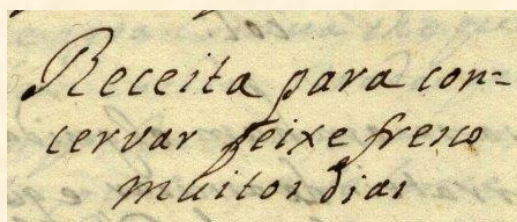 Receita para con=
cervar peixe fresco
muitos dias